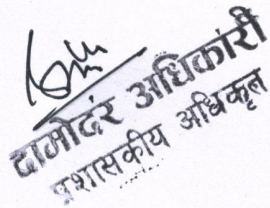 दामोदर अधिकारी
प्रशासकीय अधिकृत